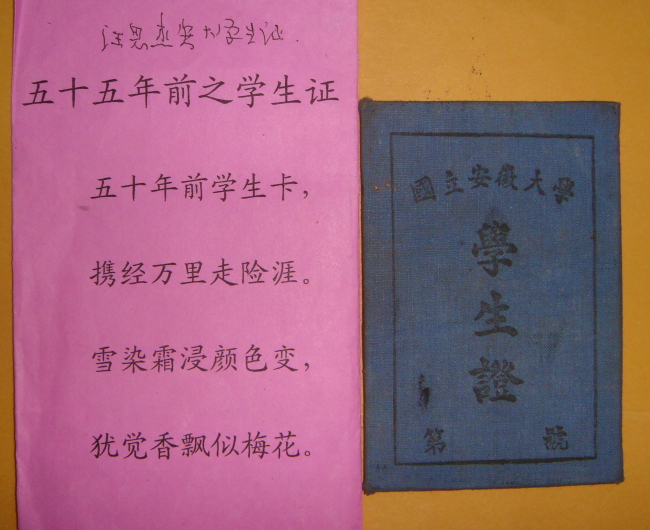 汪思杰安大学生证
五十五年前之学生证
五十年前学生卡，
携经万里走险涯。
雪染霜浸颜色变，
犹觉香飘似梅花。
國立安徽大學
學生證
第 號